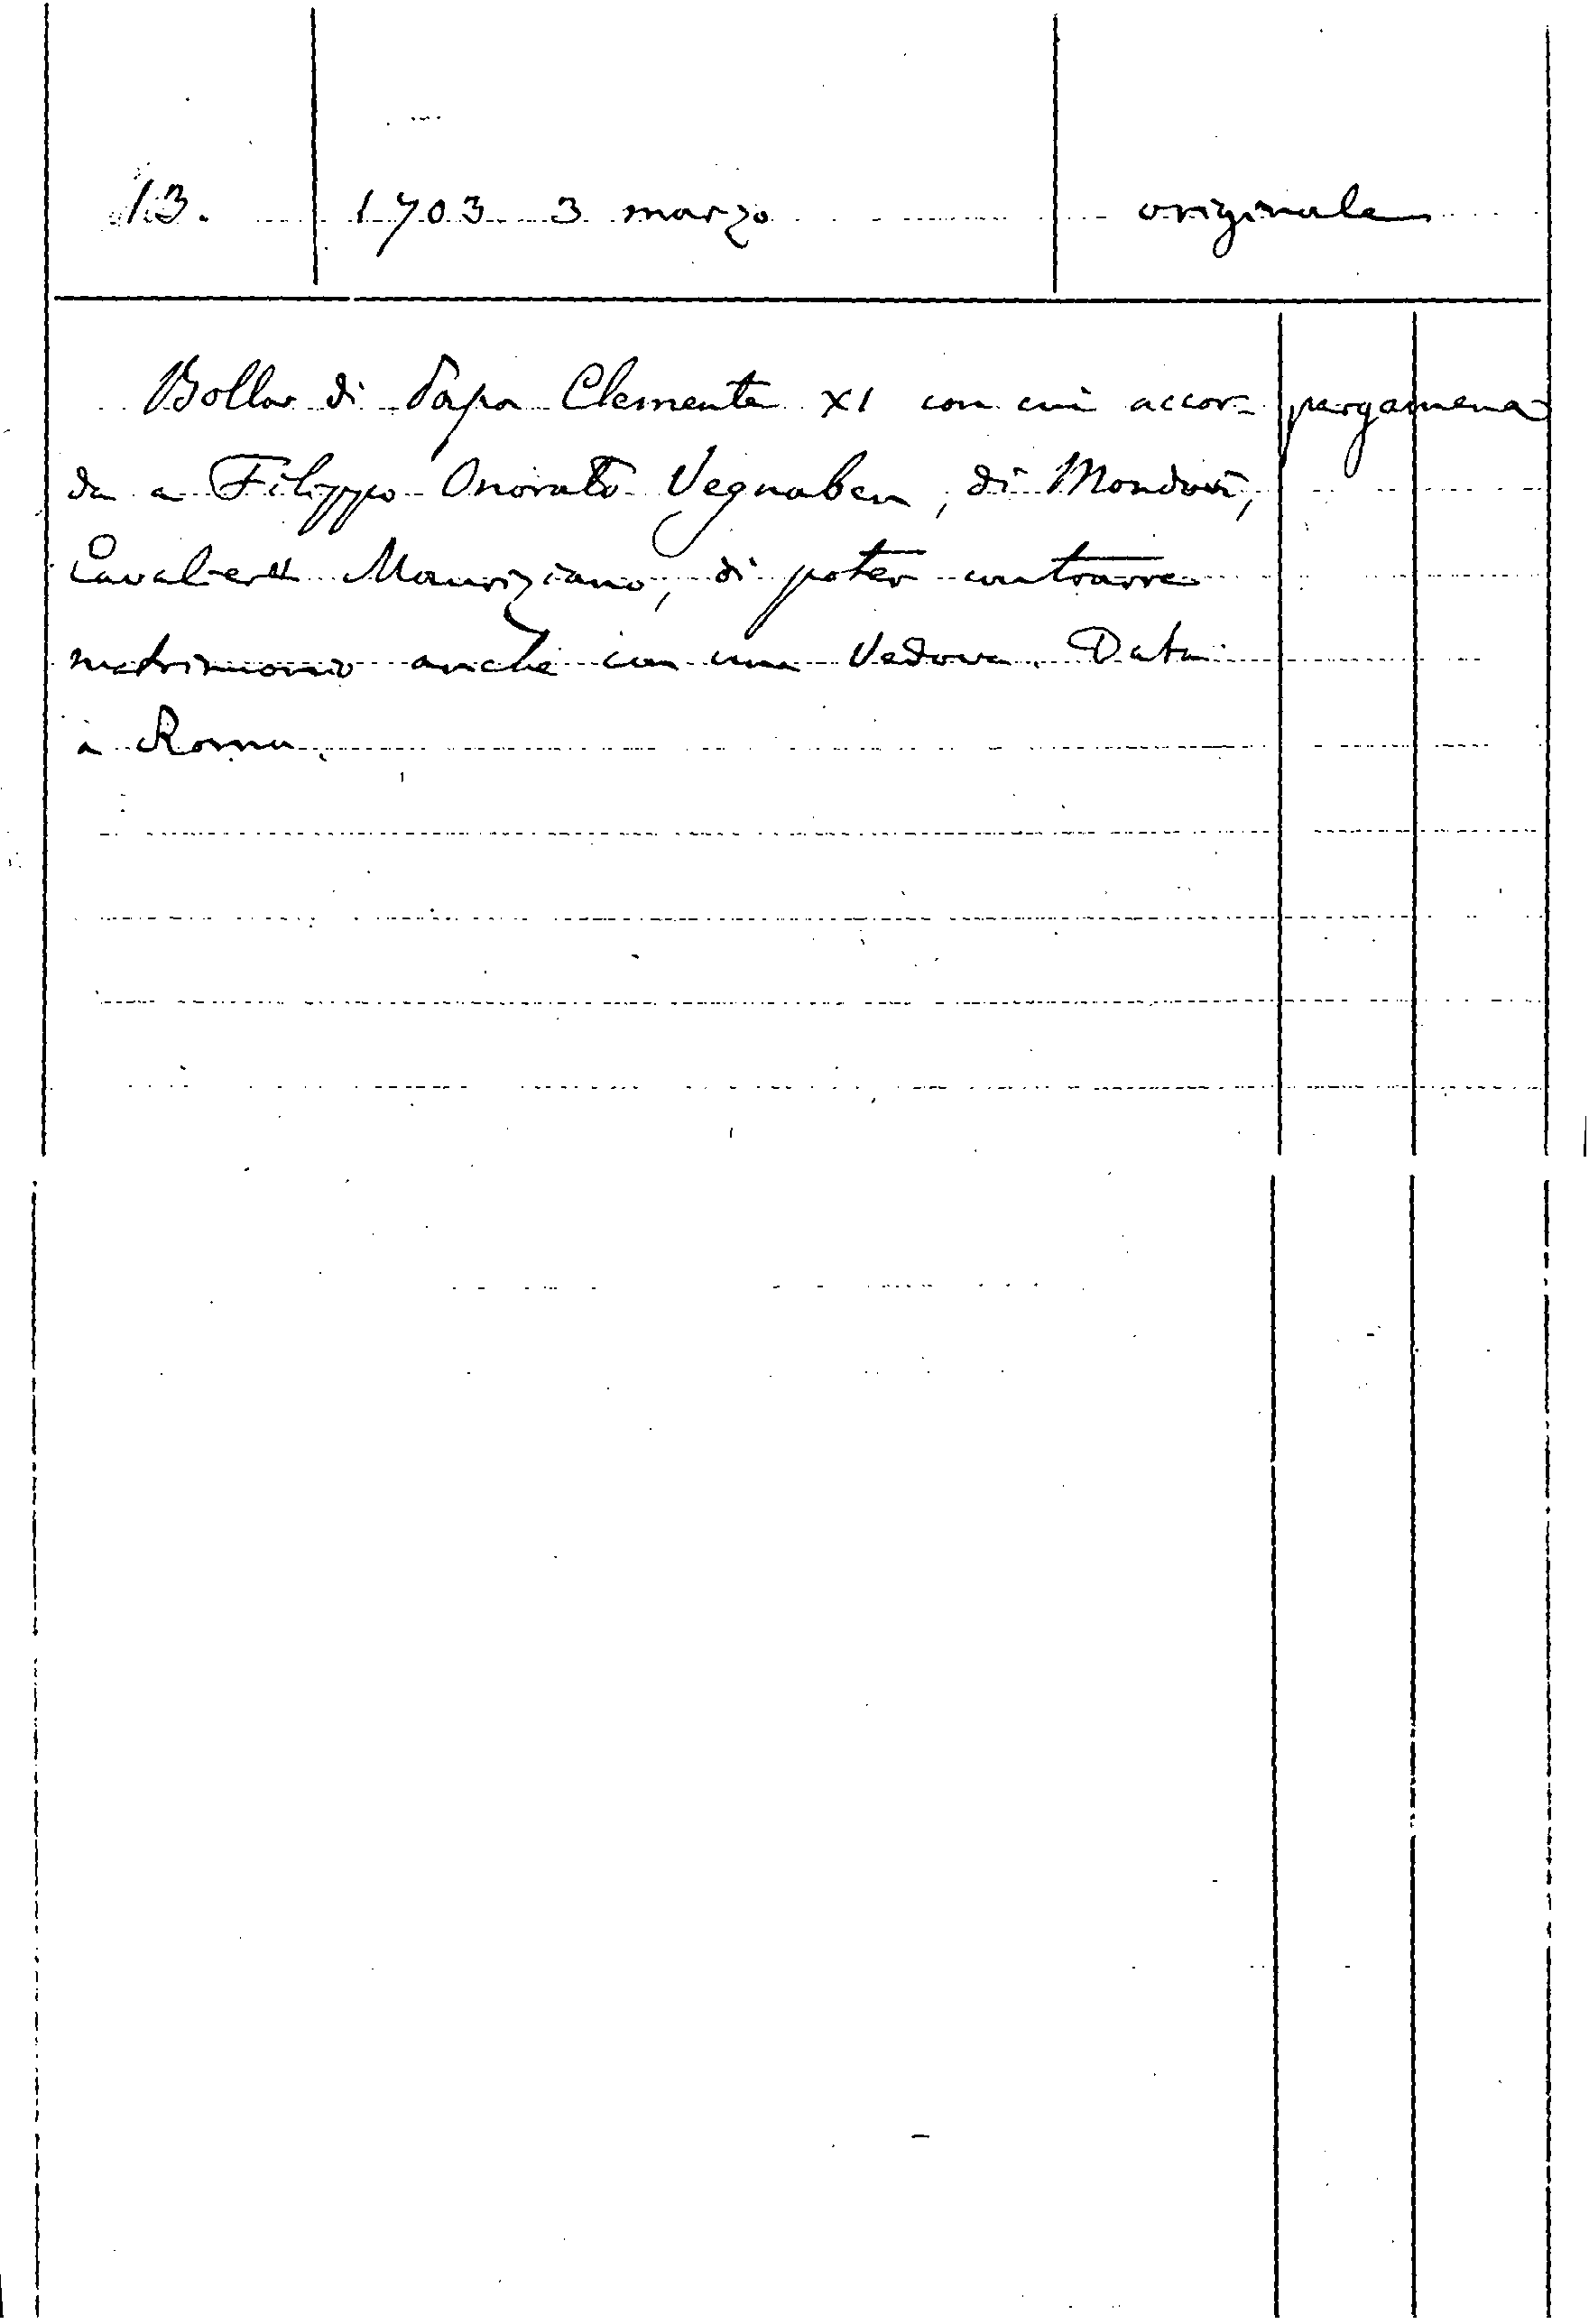 13. 1703 3 marzo originale
Bolla di Papa Clemente XI con cui accor= pergamena
da a Filippo Onorato Vegnaben, di Mondovì,
Cavaliere Mauriziano, di poter contrarre
matrimonio anche con una Vedova. Data
a Roma.